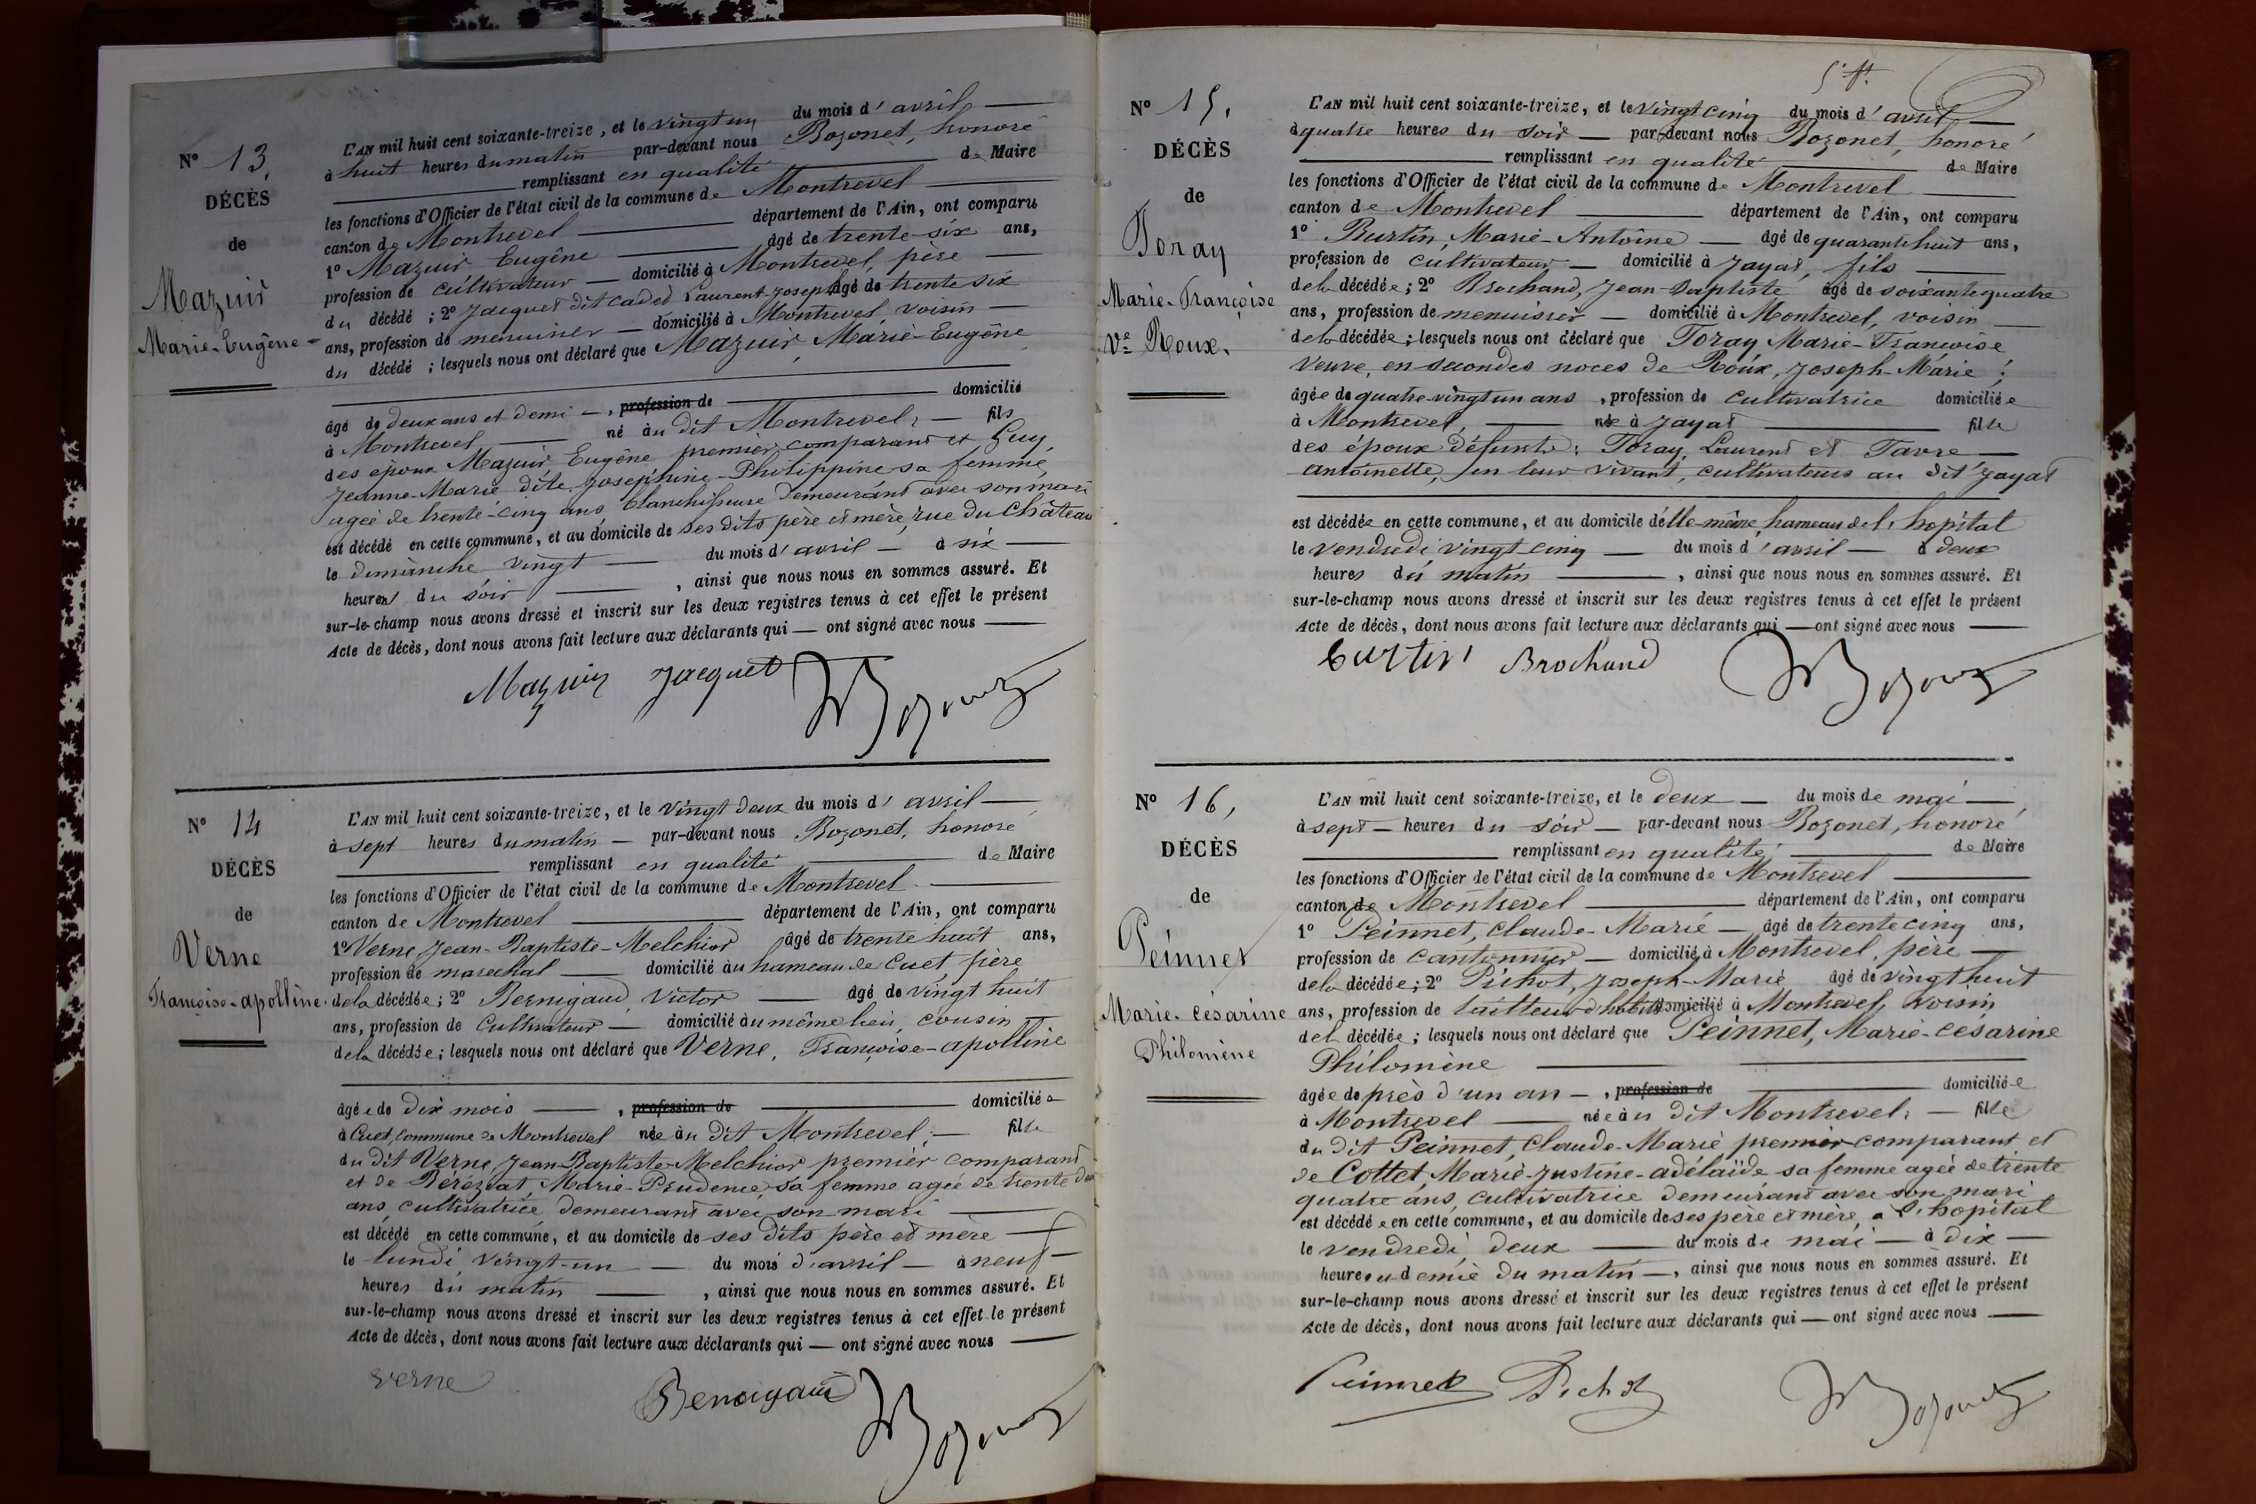 N° 13,
DÉCÈS
de
Mazuir
Marie-Eugêne
L'AN mil huit cent soixante-treize, et le vingt un du mois d'avril
à huit heures du matin par-devant nous Bozonet, honoré
remplissant en qualité de Maire
les fonctions d'Officier de l'état civil de la commune de Montrevel
canton de Montrevel département de l'Ain, ont comparu
1° Mazuir Eugêne âgé de trente-six ans,
profession de cultivateur domicilié à Montrevel, père
du décédé ; 2° Jacquet dit cadet Laurent-Joseph âgé de trente six
ans, profession de menuisier domicilié à Montrevel voisin
du décédé ; lesquels nous ont déclaré que Mazuir, Marie-Eugêne
âgé de deux ans et demi, profession de domicilié
à Montrevel né au dit Montrevel, fils
des époux Mazuir Eugêne premier comparant et Guy,
Jeanne-Marie dite Joséphine-Philippine sa femme
agée de trente-cinq ans blanchisseuse demeurant avec son mari
est décédé en cette commune, et au domicile de ses dits père et mère, rue du Château
le dimanche vingt du mois d'avril à six
heures du soir, ainsi que nous nous en sommes assuré. Et
sur-le-champ nous avons dressé et inscrit sur les deux registres tenus à cet effet le présent
Acte de décès, dont nous avons fait lecture aux déclarants qui — ont signé avec nous
Mazuir Jacquet Bozonet
N° 14
DÉCÈS
de
Verne
Françoise-apolline.
L'AN mil huit cent soixante-treize, et le vingt deux du mois d'avril
à sept heures du matin par-devant nous Bozonet, honoré
remplissant en qualité de Maire
les fonctions d'Officier de l'état civil de la commune de Montrevel
canton de Montrevel département de l'Ain, ont comparu
1° Verne Jean-Baptiste-Melchior âgé de trente huit ans,
profession de marechal domicilié au hameau de Cuet, père
de la décédée ; 2° Bernigaud Victor âgé de vingt huit
ans, profession de Cultivateur domicilié au même lieu, cousin
de la décédée ; lesquels nous ont déclaré que Verne, Françoise-apolline
âgée de dix mois, profession de domiciliée
à Cuet, commune de Montrevel née au dit Montrevel, fille
du dit Verne, Jean-Baptiste-Melchior premier comparant
et de Marie-Prudence, sa femme agée de trente
ans cultivatrice demeurant avec son mari
est décédé en cette commune, et au domicile de ses dits père et mère
le lundi vingt-un du mois d'avril à neuf
heures du matin, ainsi que nous nous en sommes assuré. Et
sur-le-champ nous avons dressé et inscrit sur les deux registres tenus à cet effet le présent
Acte de décès, dont nous avons fait lecture aux déclarants qui — ont signé avec nous
verne Bernigaud Bozonet
N° 15,
DÉCÈS
de
Foray
Marie-Françoise
Ve Roux.
L'AN mil huit cent soixante-treize, et le vingt cinq du mois d'avril
à quatre heures du soir par-devant nous Bozonet, honoré
remplissant en qualité de Maire
les fonctions d'Officier de l'état civil de la commune de Montrevel
canton de Montrevel département de l'Ain, ont comparu
1° Burtin, Marie-Antoine âgé de quarante huit ans,
profession de cultivateur domicilié à Jayat, fils
de la décédée ; 2° Brochand, Jean-Baptiste âgé de soixante quatre
ans, profession de menuisier domicilié à Montrevel, voisin
de la décédée ; lesquels nous ont déclaré que Foray Marie-Françoise
Veuve, en secondes noces de Roux, Joseph-Marie ;
âgée de quatre-vingt un ans, profession de cultivatrice domiciliée
à Montrevel, née à Jayat fille
des époux défunts : Foray, Laurent et Favre
antoinette, en leur vivant, cultivateurs au dit Jayat
est décédée en cette commune, et au domicile d'elle-même, hameau de l'hopital
le vendredi vingt cinq du mois d'avril à deux
heures du matin, ainsi que nous nous en sommes assuré. Et
sur-le-champ nous avons dressé et inscrit sur les deux registres tenus à cet effet le présent
Acte de décès, dont nous avons fait lecture aux déclarants qui — ont signé avec nous
burtin Brochand Bozonet
N° 16,
DÉCÈS
de
Peinnet
Marie-césarine
Philomène
L'AN mil huit cent soixante-treize, et le deux du mois de mai
à sept heures du soir par-devant nous Bozonet, honoré
remplissant en qualité de Maire
les fonctions d'Officier de l'état civil de la commune de Montrevel
canton de Montrevel département de l'Ain, ont comparu
1° Peinnet, Claude-Marie âgé de trente cinq ans,
profession de cantonnier domicilié à Montrevel, père
de la décédée ; 2° Pichot, Joseph-Marie âgé de vingt huit
ans, profession de tailleur d'habits domicilié à Montrevel, voisin
de la décédée ; lesquels nous ont déclaré que Peinnet, Marie-césarine
Philomène
âgée de près d'un an, profession de domiciliée
à Montrevel née au dit Montrevel, fille
du dit Peinnet, Claude-Marie premier comparant et
de Cottet, Marie-Justine-adélaïde sa femme agée de trente
quatre ans, cultivatrice demeurant avec son mari
est décédée en cette commune, et au domicile de ses père et mère, a l'hopital
le vendredi deux du mois de mai à dix
heures et demie du matin, ainsi que nous nous en sommes assuré. Et
sur-le-champ nous avons dressé et inscrit sur les deux registres tenus à cet effet le présent
Acte de décès, dont nous avons fait lecture aux déclarants qui — ont signé avec nous
Peinnet Pichot Bozonet